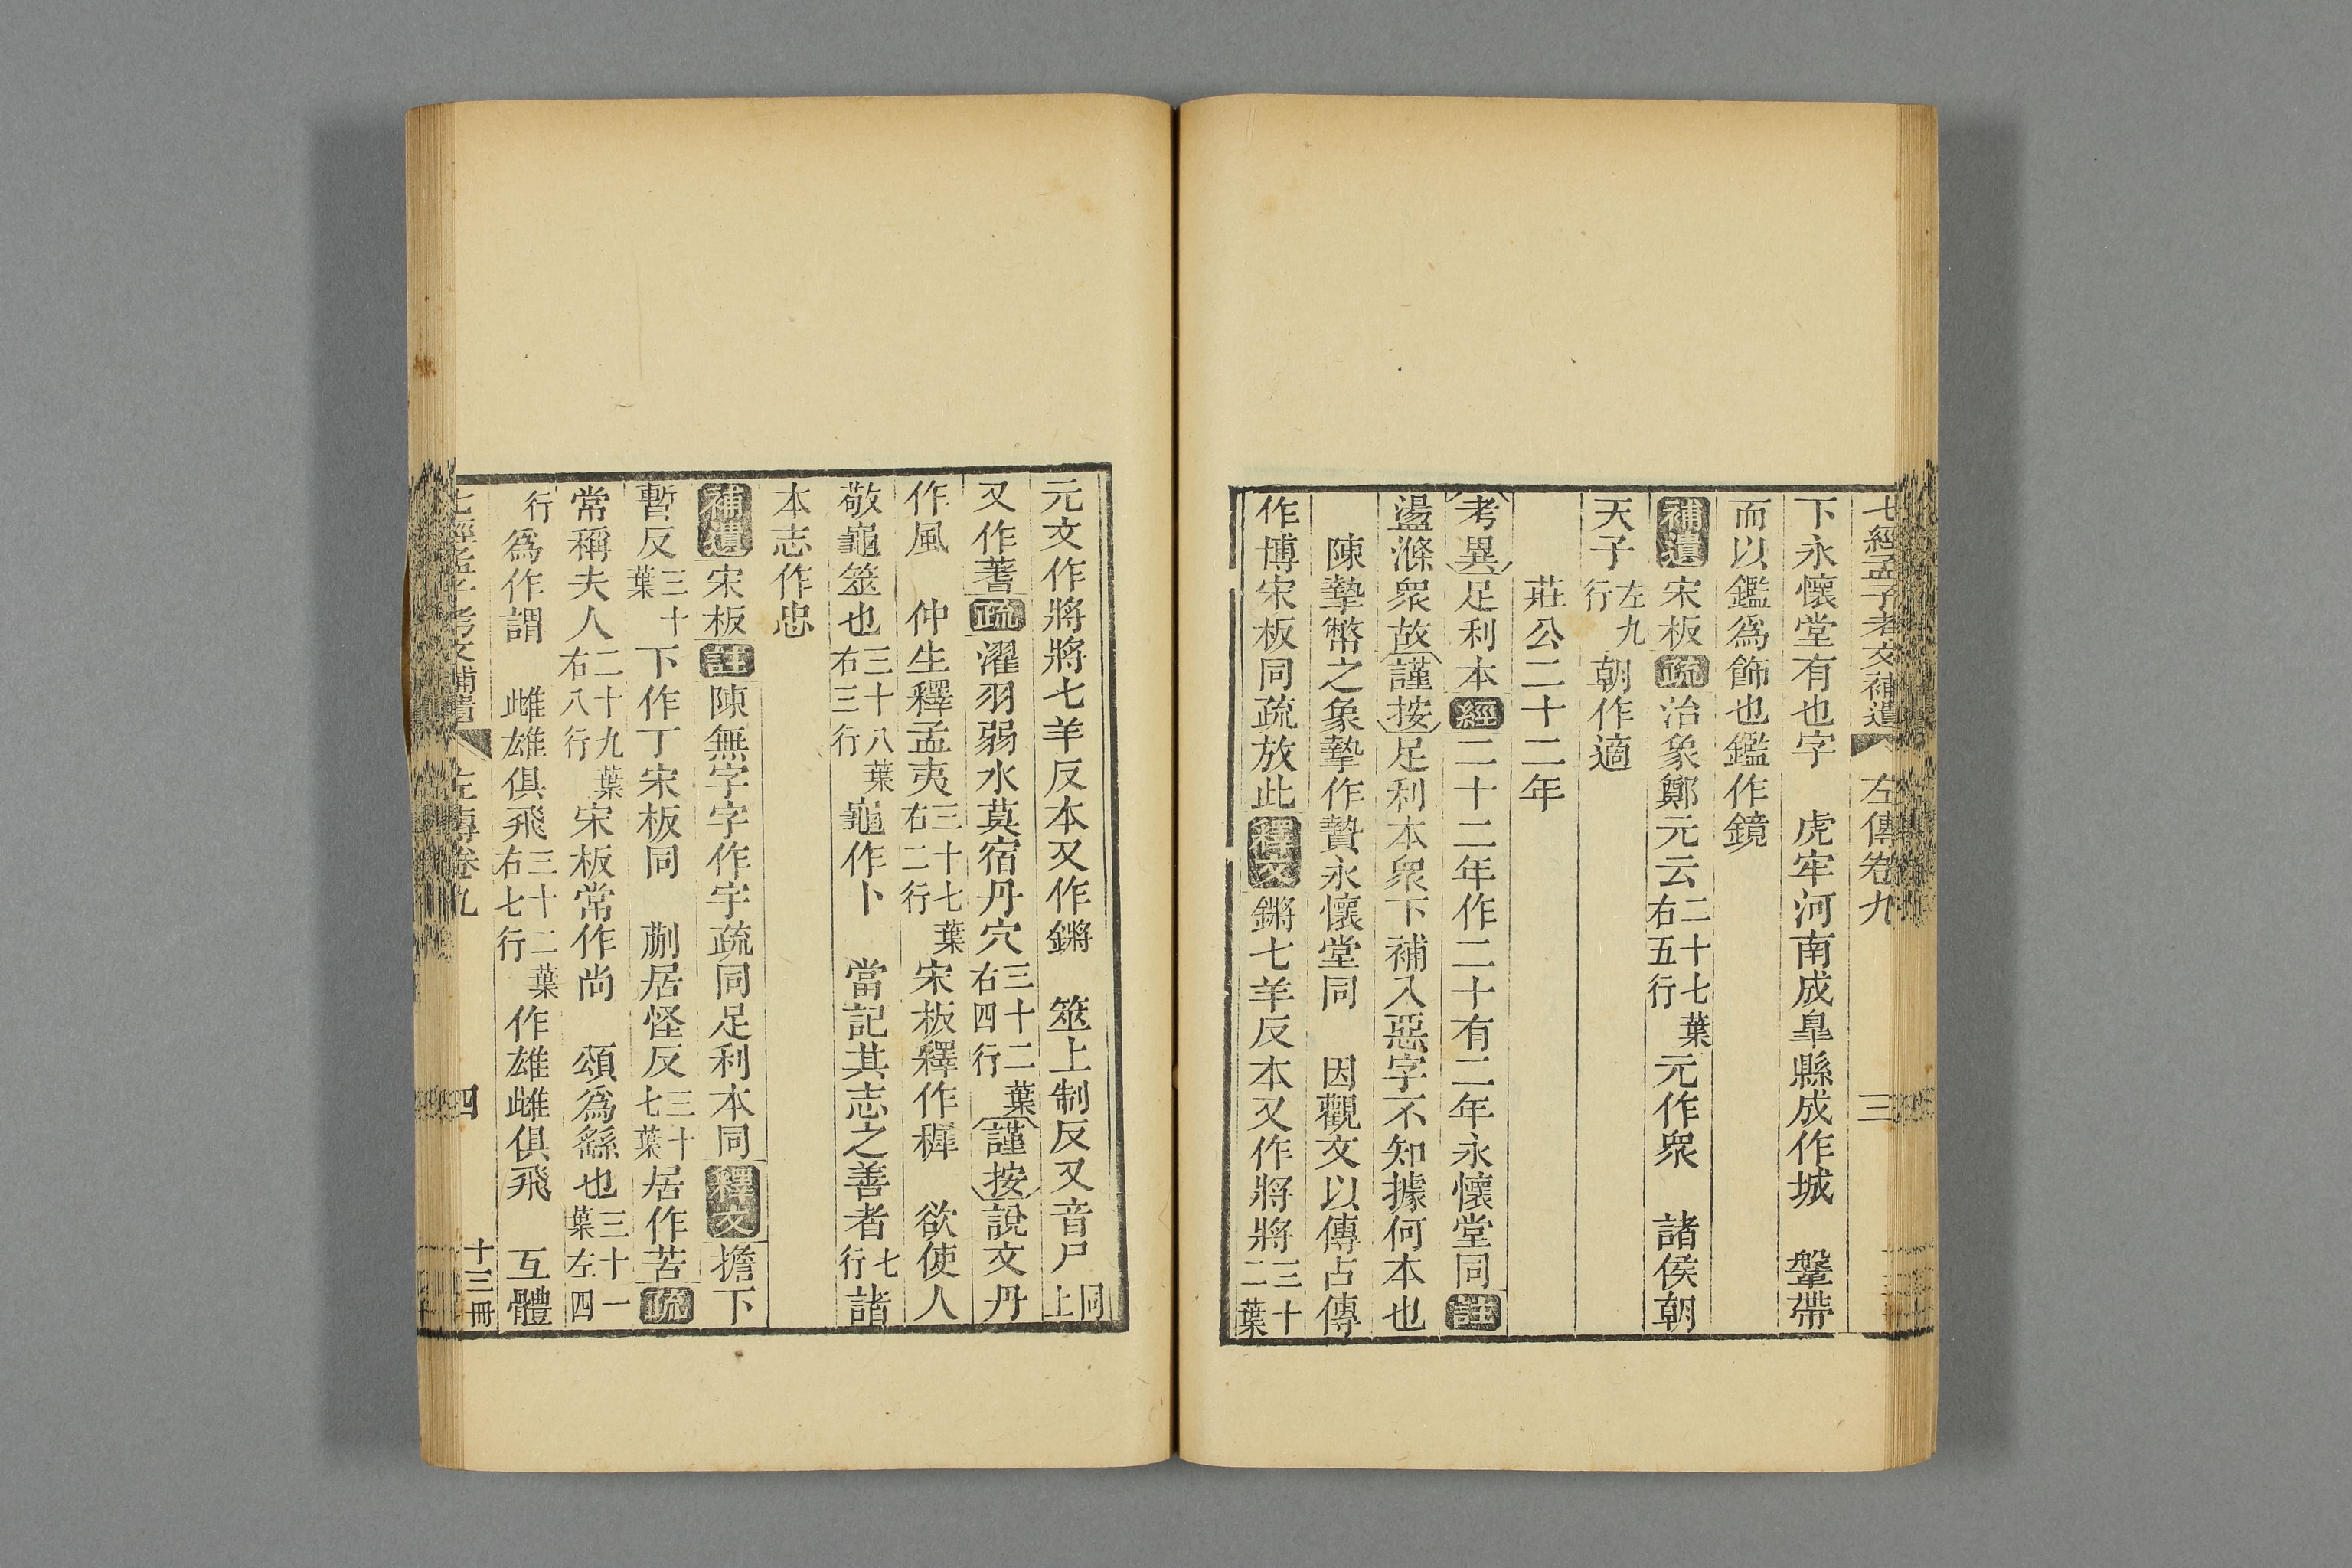 七經孟子考文補遺 左傳卷九 三
下永懷堂有也字 虎牢河南成臯縣成作城 鞶帶
而以鑑爲飾也鑑作鏡
補遺宋板疏治象鄭元云二十七葉右五行元作衆 諸侯朝
天子左九行朝作適
莊公二十二年
考異足利本經二十二年作二十有二年永懷堂同註
盪滌衆故謹按足利本衆下補入惡字不知據何本也
陳摯幣之象摯作贄永懷堂同 因觀文以傳占傳
作博宋板同疏放此釋文鏘七羊反本又作將將三十二葉
元文作將將七羊反本又作鏘 筮上制反又音尸同上
又作蓍疏濯羽弱水莫宿丹穴三十二葉右四行謹按說文丹
作風 仲生釋孟夷三十七葉右二行宋板釋作穉 欲使人
敬龜筮也三十八葉右三行龜作卜 當記其志之善者七行諸
本志作忠
補遺宋板註陳無字字作宇疏同足利本同釋文擔下
暫反三十葉下作丁宋板同 蒯居怪反三十七葉居作苦疏
常稱夫人二十九葉右八行宋板常作尚 頌爲繇也三十一葉左四
行爲作謂 雌雄俱飛三十二葉右七行作雄雌俱飛 互體
七經孟子考文補遺 左傳卷九 四 十三冊